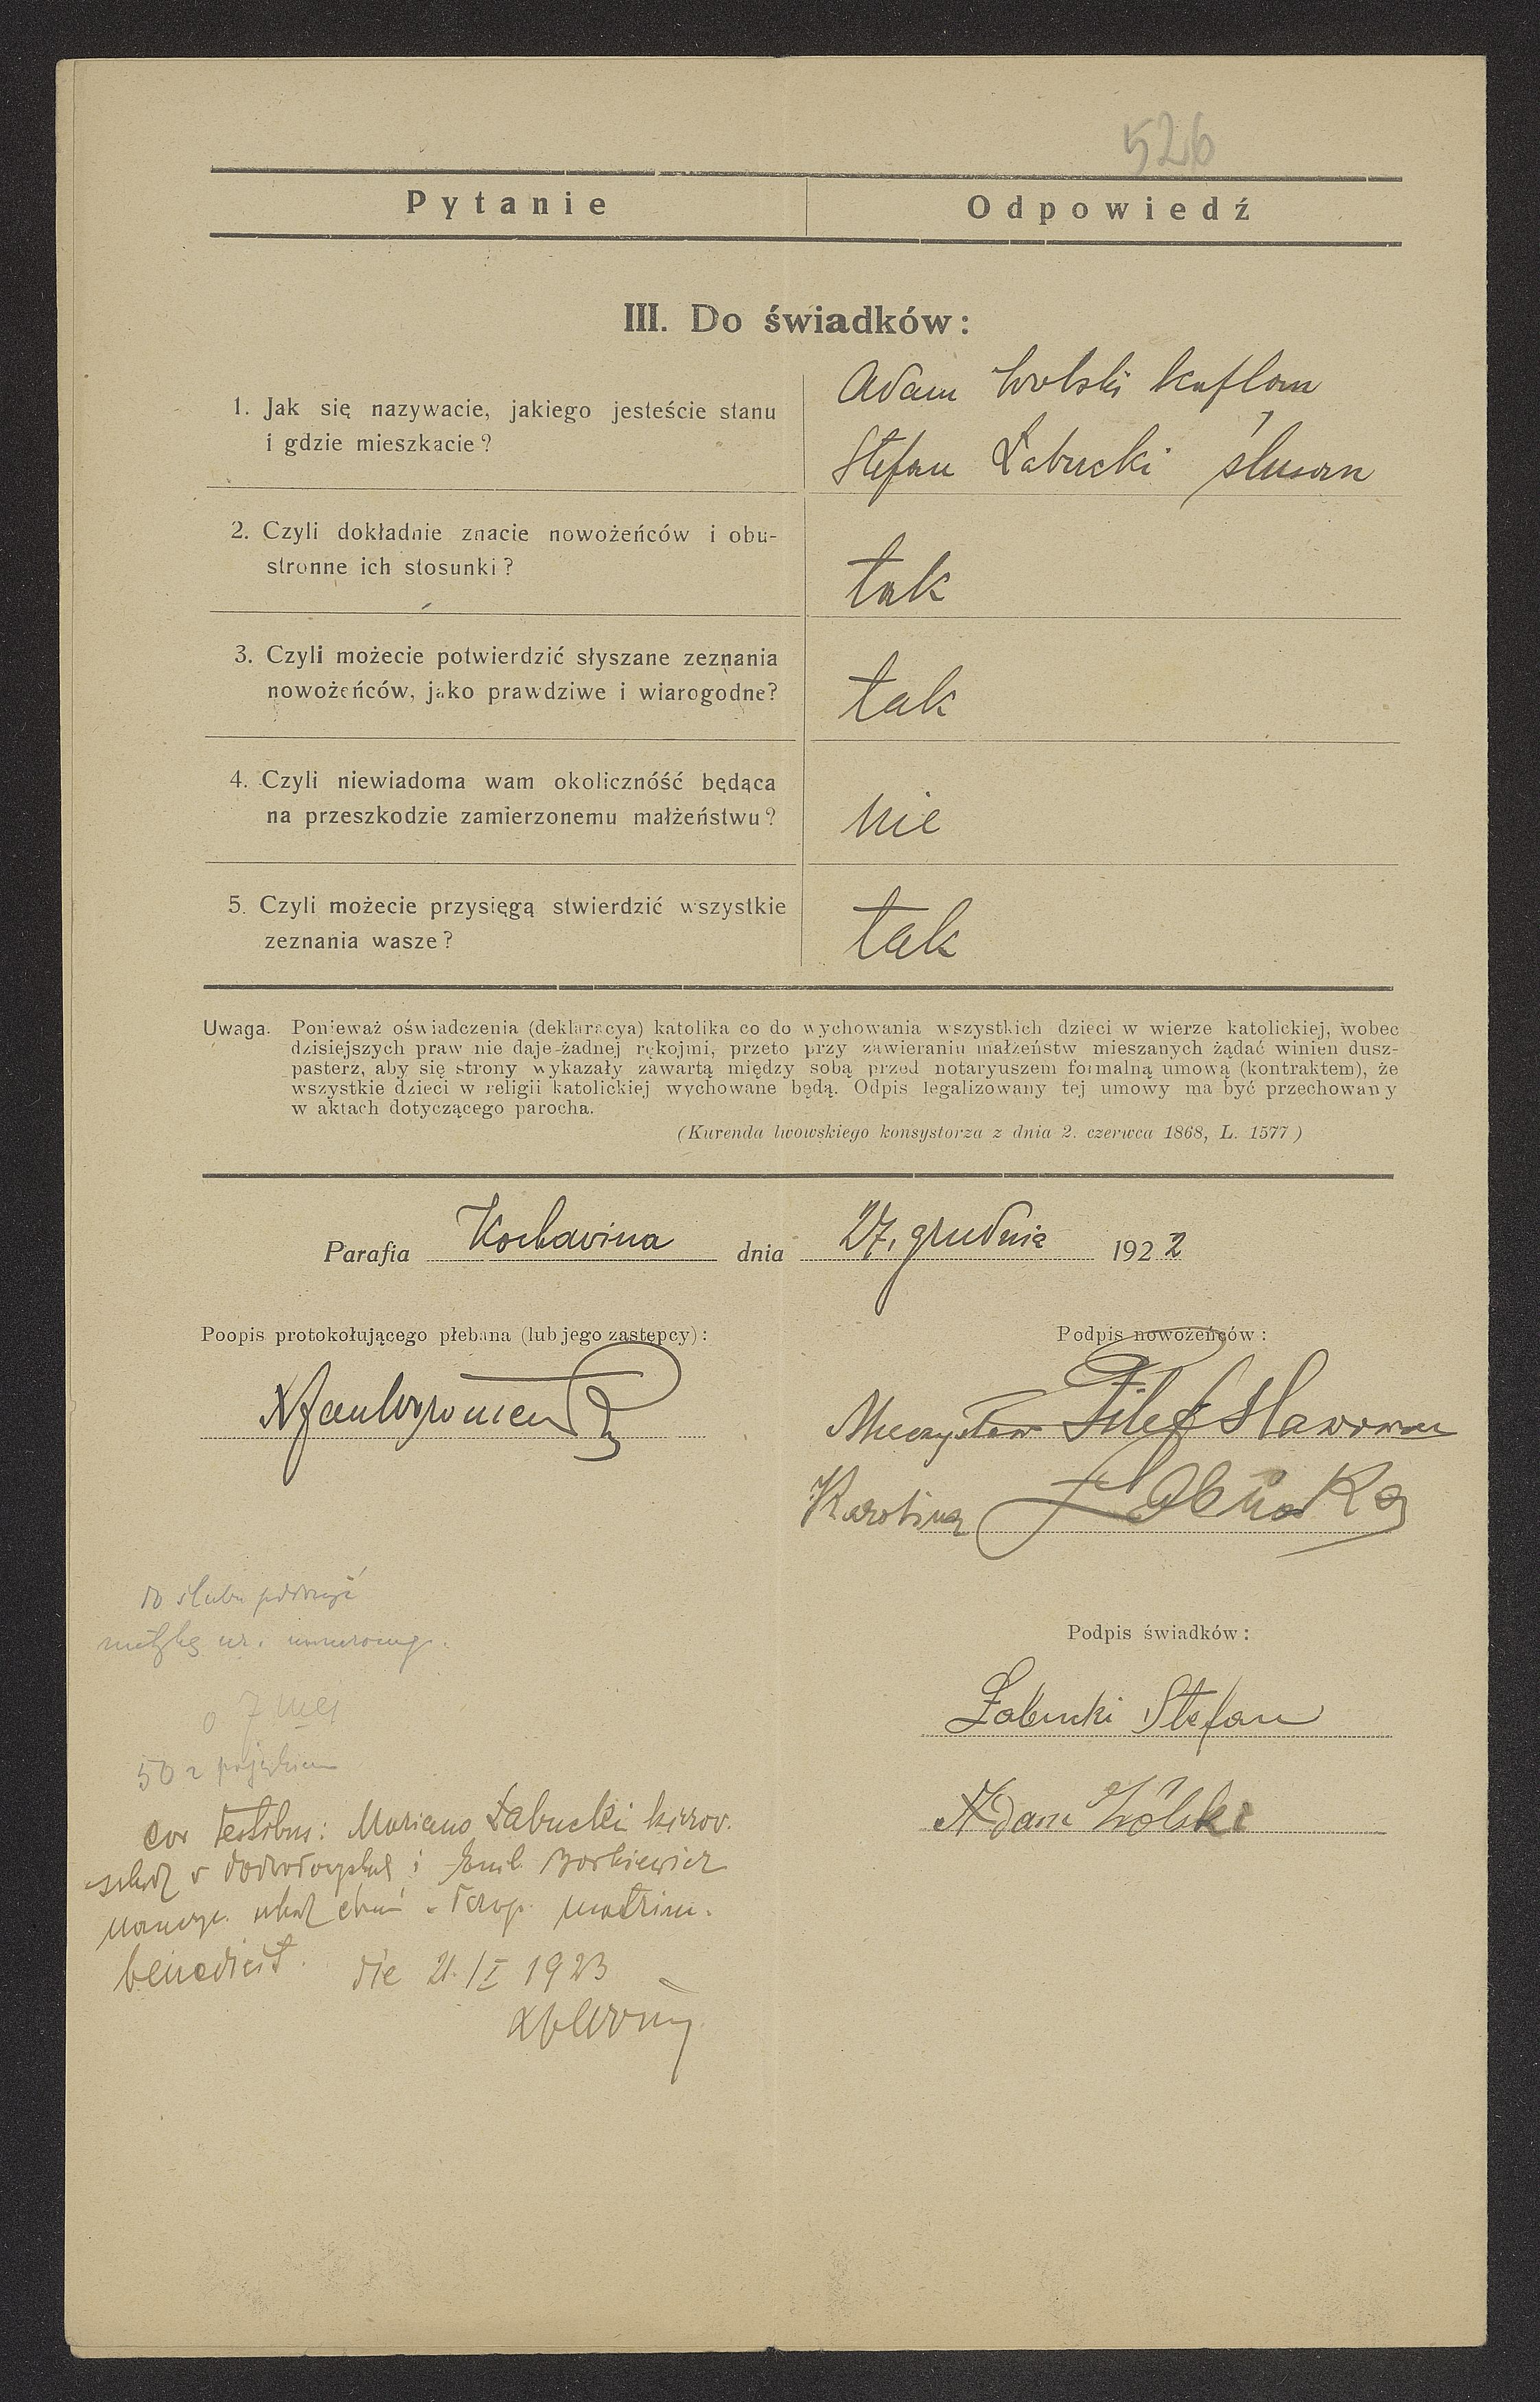 526
Pytanie
Odpowiedź
III. Do świadków:
1. Jak się nazywacie, jakiego jesteście stanu
i gdzie mieszkacie?
Adam Wolski
Stefan Łabucki ślusarz
2. Czyli dokładnie znacie nowożeńców i obu-
stronne ich stosunki?
tak
3. Czyli możecie potwierdzić słyszane zeznania
nowożeńców, jako prawdziwe i wiarogodne?
tak
4. Czyli niewiadoma wam okolicznóść będąca
na przeszkodzie zamierzonemu małżeństwu?
nie
5. Czyli możecie przysięgą stwierdzić wszystkie
zeznania wasze?
tak
Uwaga. Ponieważ oświadczenia (deklaracya) katolika co do wychowania wszystkich dzieci w wierze katolickiej, wobec
dzisiejszych praw nie daje żadnej rękojmi, przeto przy zawieraniu małżeństw mieszanych żądać winien dusz-
pasterz, aby się strony wykazały zawartą między sobą przed notaryuszem formalną umową (kontraktem), że
wszystkie dzieci w religii katolickiej wychowane będą. Odpis legalizowany tej umowy ma być przechowany
w aktach dotyczącego parocha.
(Kurenda lwowskiego konsystorza z dnia 2. czerwca 1868, L. 1577)
Parafia Kochawina dnia 27, grudnia 1922
Poopis protokołującego płebana (lub jego zastępcy):
Podpis nowożeńców:
Mieczysław Filef
Karolina Łabucka
do ślubu
Podpis świadków:
Łabucki Stefan
Adam Wólski
50
cor testibus: Mariano Łabucki kierow.
i Emil. Borkiewicz
matrim.
benedixit. die 21. / I 1923